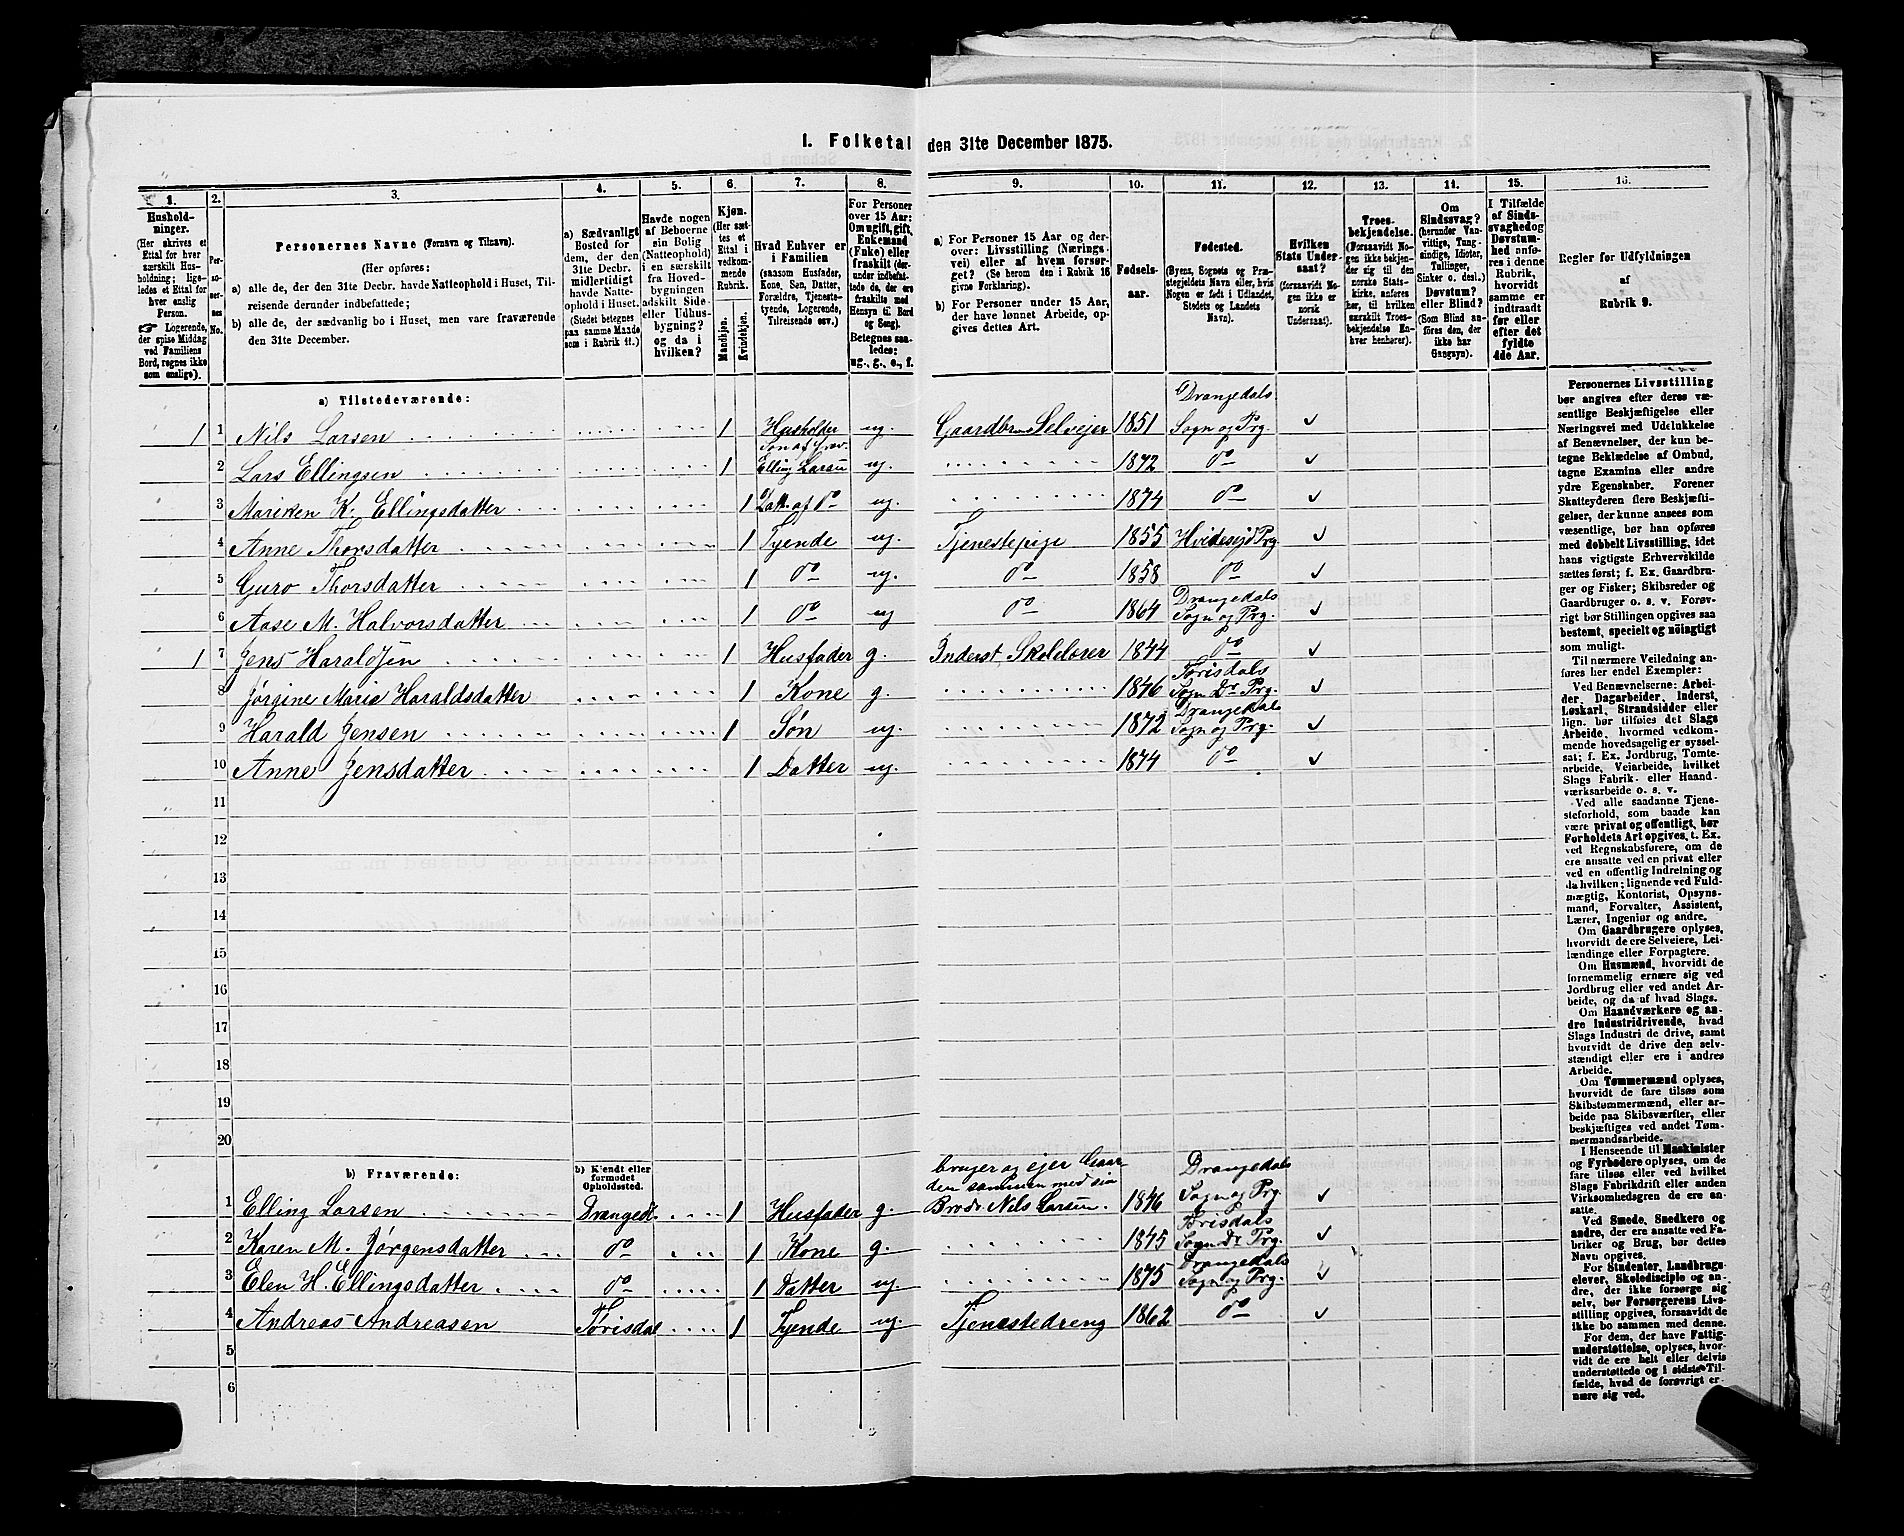 I. Folketal den 31te December 1875.
1. 2. 3. 4. 5. 6. 7. 8. 9. 10. 11. 12. 13. 14. 15. 16.
Husholdninger. (Her skrives et Ettal for hver særskilt Husholdning; ligeledes et Ettal for hver enslig Person. Logerende, der spise Middag ved Familiens Bord, regnes ikke som enslige).
Personernes No.
Personernes Navne (Fornavn og Tilnavn).
(Her opføres:
a) alle de, der den 31te Decbr. havde Natteophold i Huset, Tilreisende derunder indbefattede;
b) alle de, der sædvanlig bo i Huset, men vare fraværende den 31te December.
a) Sædvanligt Bosted for dem, der den 31te Decbr. midlertidigt havde Natteophold i Huset. (Stedet betegnes paa samme Maade som i Rubrik 11.)
Havde nogen af Beboerne sin Bolig (Natteophold) i en særskilt fra Hovedbygningen adskilt Side- eller Udhusbygning? og da i hvilken?
Kjøn. (Her sættes et Ettal i vedkommende Rubrik. Mandkjøn. Kvindekjøn.
Hvad Enhver er i Familien (saasom Husfader, Kone, Søn, Datter, Forældre, Tjenestetyende, Logerende, Tilreisende osv.)
For Personer over 15 Aar: Om ugift, gift, Enkemand (Enke) eller fraskilt (derunder indbefattede de, der ere fraskilte med Hensyn til Bord og Seng). Betegnes saaledes: ug., g., e., f.
a) For Personer 15 Aar og derover: Livsstilling (Næringsvei) eller af hvem forsørget? (Se herom den i Rubrik 16 givne Forklaring).
b) For Personer under 15 Aar, der have lønnet Arbeide, opgives dettes Art.
Fødselsaar.
Fødested. (Byens, Sognets og Præstegjeldets Navn eller, hvis Nogen er født i Udlandet, Stedets og Landets Navn).
Hvilken Stats Undersaat? (forsaavidt Nogen ikke er norsk Undersaat).
Troesbekjendelse. (Forsaavidt Nogen ikke bekjender sig til den norske Statskirke, anføres her, til hvilken særskilt Troesbekjendelse Enhver henhører).
Om Sindssvag? (herunder Vanvittige, Tungsindige, Idioter, Tullinger, Sinker o. desl.) Døvstum? eller Blind? (Som Blind anføres den, der ikke har Gangsyn).
I Tilfælde af Sindssvaghed og Døvstumhed anføres i denne Rubrik, hvorvidt samme er indtraadt før eller efter det fyldte 4de Aar.
Regler for Udfyldningen af Rubrik 9.
a) Tilstedeværende:
1 1 Nils Larsen 1 Husholder ug. Gaardbr. Selvejer 1851 Drangedals Sogn og Prg.
2 Lars Ellingsen 1 Søn af frav. Elling Larsen ug. 1872 do
3 Mariken K. Ellingsdatter 1 Datt. af do ug. 1874 do
4 Anne Thorsdatter 1 Tyende ug. Tjenestepige 1855 Hvidesejd Prg
5 Guro Thorsdatter 1 do ug. do 1858 do
6 Aase M. Halvorsdatter 1 do ug do 1864 Drangedals Sogn og Prg.
1 7 Jens Haraldsen 1 Husfader g. Inderst, Skolelærer 1844 do
8 Jørgine Marie Haraldsdatter 1 Kone g. 1846 Tørisdals Sogn Dr. Prg.
9 Harald Jensen 1 Søn ug. 1872 Drangedals Sogn og Prg.
10 Anne Jensdatter 1 Datter ug. 1874 do
11
12
13
14
15
16
17
18
19
20
b) Fraværende:
b) Kjendt eller formodet Opholdssted.
1 Elling Larsen Draged. 1 Husfader g. bruger og ejer Gaarden sammen med sin Broder Nils Larsen. 1846 Drangedals Sogn og Prg.
2 Karen M. Jørgensdatter do 1 Kone g. 1845 Tørisdals Sogn Dr. Prg.
3 Elen H. Ellingsdatter do 1 Datter ug. 1875 Drangedals Sogn og Prg.
4 Andreas Andreasen Tørisdal 1 Tyende ug. Tjenestedreng 1862 do
5
6
Personernes Livsstilling
bør angives efter deres væsentlige Beskjæftigelse eller
Næringsvei med Udelukkelse
af Benævnelser, der kun betegne Beklædelse af Ombud,
tagne Examina eller andre
ydre Egenskaber. Forener
Skatteyderen flere Beskjæftigelser, der kunne ansees som
væsentlige, bør han opføres
med dobbelt Livsstilling, idet
hans vigtigste Erhvervskilde
sættes først; f. Ex. Gaardbruger og Fisker; Skibsreder og
Gaardbruger o. s. v. Forøvrigt bør Stillingen opgives saa
bestemt, specielt og nøiagtigt
som muligt.
Til nærmere Veiledning anføres her endel Exempler:
Ved Benævnelserne: Arbeider, Dagarbeider, Inderst,
Løskarl, Strandsidder eller
lign. bør tilføies det Slags
Arbeide, hvormed vedkommende hovedsagelig er sysselsat; f. Ex. Jordbrug, Tomtearbeide, Veiarbeide, hvilket
Slags Fabrik- eller Haandværksarbeide o. s. v.
Ved alle saadanne Tjenesteforhold, som baade kan
være privat og offentligt, bør
Forholdets Art opgives, t. Ex.
ved Regnskabsførere, om de
ere ansatte ved en privat eller
ved en offentlig Indretning og
da hvilken; lignende ved Fuldmægtig, Kontorist, Opsynsmand, Forvalter, Assistent,
Lærer, Ingeniør og andre.
Om Gaardbrugere oplyses,
hvorvidt de ere Selveiere, Leilændinge eller Forpagtere.
Om Husmænd, hvorvidt de
fornemmelig ernære sig ved
Jordbrug eller ved andet Arbeide, og da af hvad Slags.
Om Haandværkere og andre Industridrivende, hvad
Slags Industri de drive, samt
hvorvidt de drive den selvstændigt eller ere i andres
Arbeide.
Om Tømmermænd oplyses,
hvorvidt de fare tilsøs som
Skibstømmermænd, eller arbeide paa Skibsværfter, eller
beskjæftiges ved andet Tømmermandsarbeide.
I Henseende til Maskinister
og Fyrbødere oplyses, om de
fare tilsøs eller ved hvilket
Slags Fabrikdrift eller anden
Virksomhedsgren de ere ansatte.
Ved Smede, Snedkere og
andre, der ere ansatte ved Fabriker og Brug, bør dettes
Navn opgives.
For Studenter, Landbrugselever, Skoledisciple og andre, der ikke forsørge sig
selv, bør Forsørgerens Livsstilling opgives, forsaavidt de
ikke bo sammen med denne.
For dem, der have Fattigunderstøttelse, oplyses, hvorvidt de ere helt eller delvis
understøttede og i sidste Tilfælde, hvad de forøvrigt ernære sig ved.